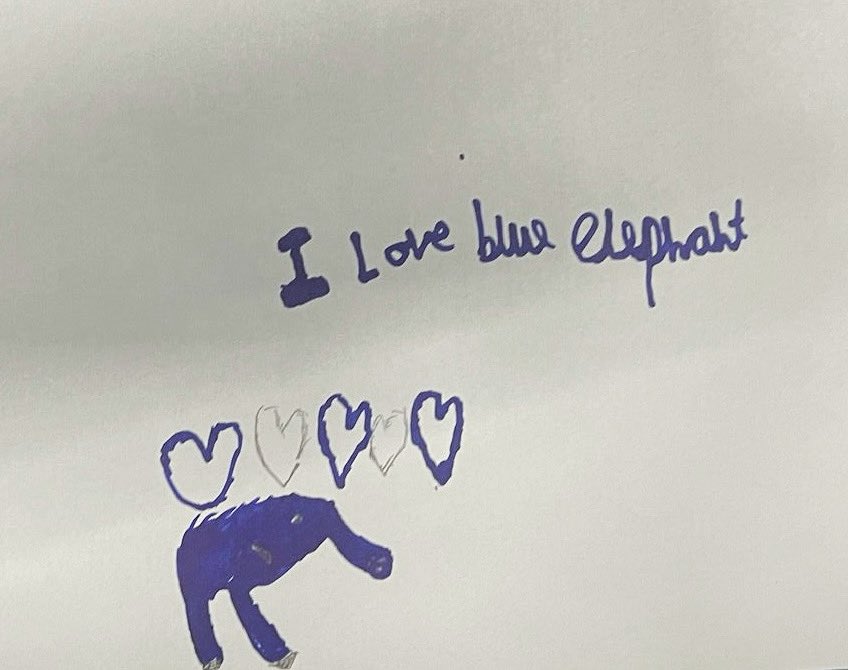 I Love blue elephant